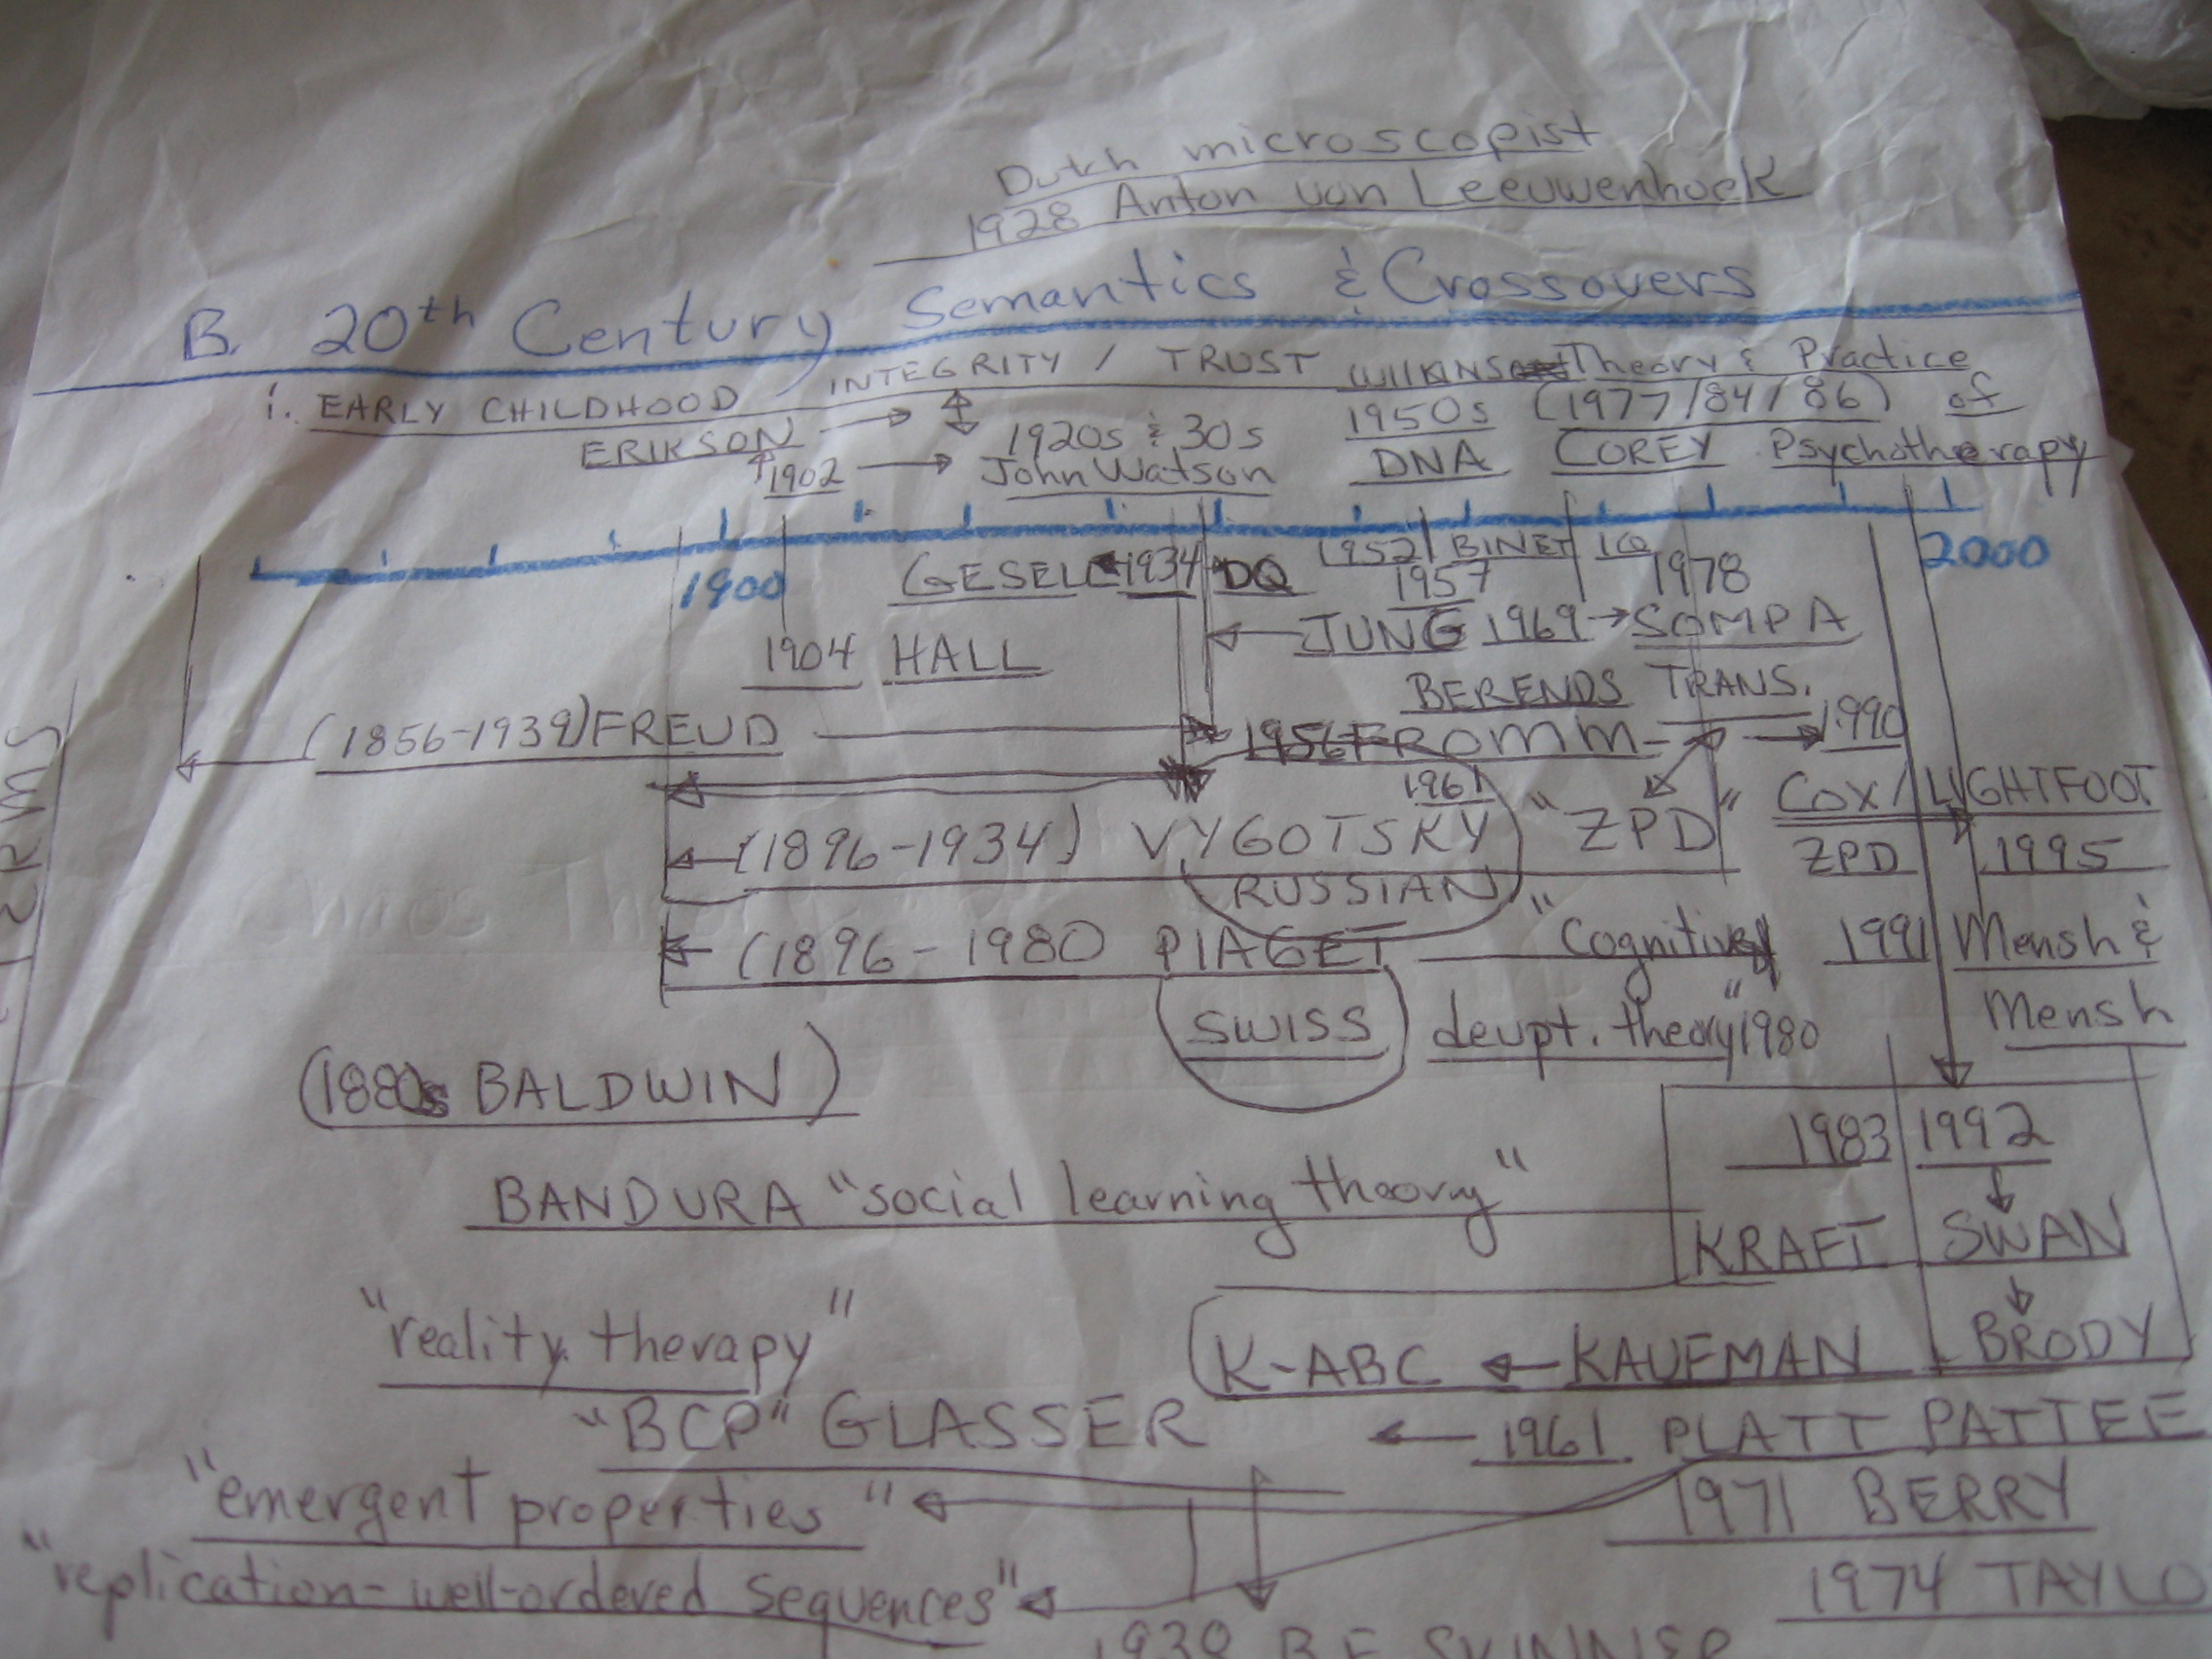 Dutch microscopist
1928 Anton van Leeuwenhoek
B. 20th Century Semantics & Crossovers
i. EARLY CHILDHOOD / INTEGRITY / TRUST WILKINS Theory & Practice
ERIKSON 1920s & 30s 1950s (1977/84/86) of
1902 John Watson DNA COREY Psychotherapy
1900 2000
GESELL 1934 DQ 1952 BINET IQ
1957 1978
1904 HALL JUNG 1969 SOMPA
BERENDS TRANS.
(1856-1939) FREUD 1956 FROMM 1990
1961
(1896-1934) VYGOTSKY "ZPD" COX/LIGHTFOOT
RUSSIAN ZPD 1995
(1896-1980 PIAGET "Cognitive 1991 Mensh &
SWISS devpt. theory" 1980 Mensh
(1880s BALDWIN)
1983 1992
BANDURA "social learning theory"
KRAFT SWAN
"reality therapy"
K-ABC KAUFMAN BRODY
"BCP" GLASSER 1961 PLATT PATTEE
"emergent properties" 1971 BERRY
"replication-well-ordered sequences" 1974 TAYLO
SKINNER